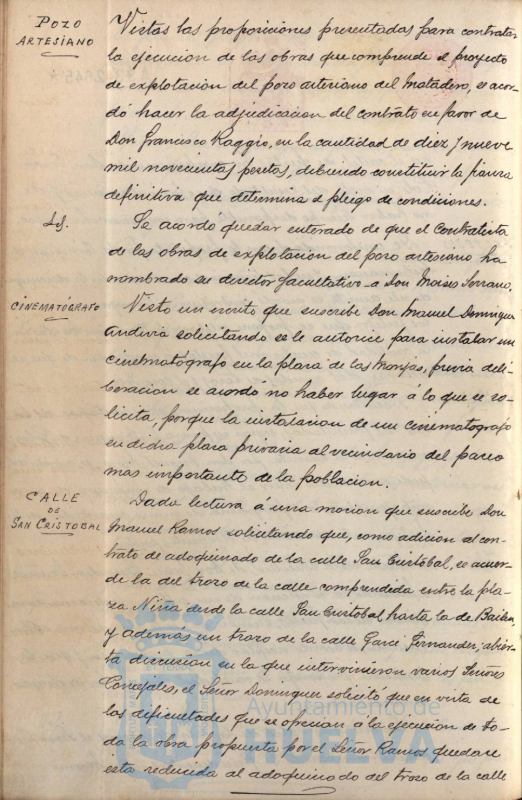 POZO
ARTESIANO
Vistas las proposiciones presentadas para contratar
la ejecución de las obras que comprende el proyecto
de explotación del pozo artesiano del Matadero, se acor-
dó hacer la adjudicación del contrato en favor de
Don Francisco Raggio, en la cantidad de diez y nueve
mil novecientas pesetas, debiendo constituir la fianza
definitiva que determina el pliego de condiciones.
Id.
Se acordó quedar enterado de que el contratista
de las obras de explotación del pozo artesiano ha
nombrado su director facultativo a Don Moisés Serrano.
CINEMATÓGRAFO
Visto un escrito que suscribe Don Manuel Domínguez
Andivia solicitando se le autorice para instalar un
cinematógrafo en la plaza de las Monjas, previa deli-
beración se acordó no haber lugar á lo que se so-
licita, porque la instalación de un cinematógrafo
en dicha plaza privaría al vecindario del paseo
más importante de la población.
CALLE
DE
SAN CRISTOBAL
Dada lectura á una moción que suscribe Don
Manuel Ramos solicitando que, como adición al con-
trato de adoquinado de la calle San Cristóbal, se acuer-
de la del trozo de la calle comprendida entre la pla-
za Niña desde la calle San Cristóbal, hasta la de Bailén,
y además un trozo de la calle Garci Fernández; abier-
ta discusión en la que intervinieron varios Señores
Concejales, el Señor Domínguez solicitó que en vista de
las dificultades que se ofrecían á la ejecución de to-
da la obra propuesta por el Señor Ramos quedase
esta reducida al adoquinado del trozo de la calle
Ayuntamiento de
HUELVA